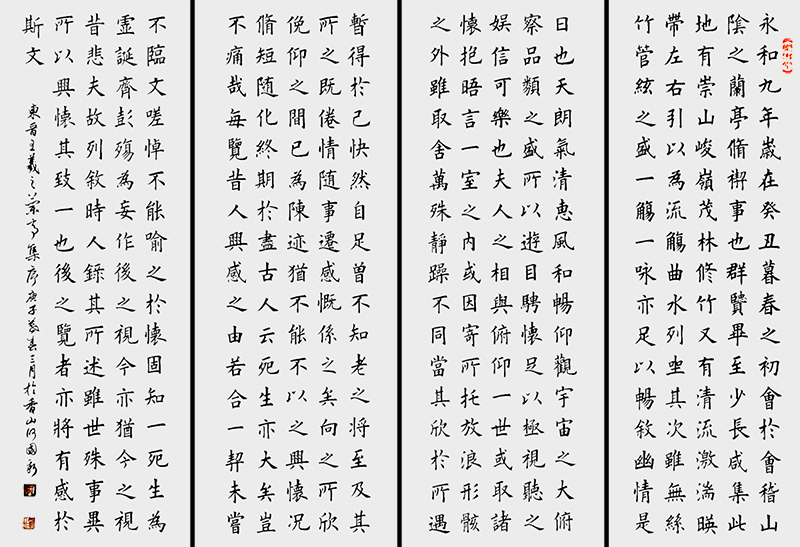 永和九年歲在癸丑暮春之初會於會稽山
陰之蘭亭脩禊事也群賢畢至少長咸集此
地有崇山峻嶺茂林修竹又有清流激湍暎
帶左右引以為流觴曲水列坐其次雖無絲
竹管絃之盛一觴一咏亦足以暢敘幽情是
日也天朗氣清惠風和暢仰觀宇宙之大俯
察品類之盛所以遊目騁懷足以極視聽之
娛信可樂也夫人之相與俯仰一世或取諸
懷抱晤言一室之內或因寄所托放浪形骸
之外雖取舍萬殊靜躁不同當其欣於所遇
暫得於己快然自足曾不知老之將至及其
所之既倦情随事遷感慨係之矣向之所欣
俛仰之間已為陳迹猶不能不以之興懷況
脩短随化終期於盡古人云死生亦大矣豈
不痛哉每覽昔人興感之由若合一契未嘗
不臨文嗟悼不能喻之於懷固知一死生為
虛誕齊彭殤為妄作後之視今亦猶今之視
昔悲夫故列敘時人錄其所述雖世殊事異
所以興懷其致一也後之覽者亦將有感於
斯文
東晉王羲之蘭亭集序庚子暮春三月於香山